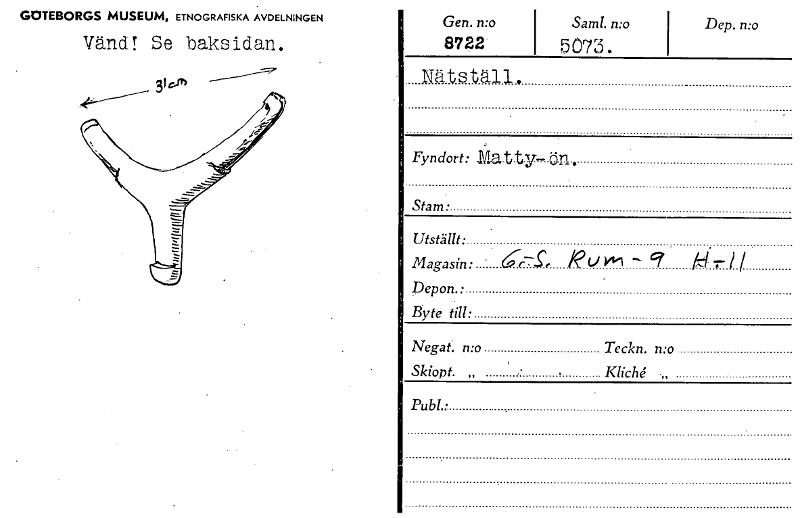 GÖTEBORGS MUSEUM, ETNOGRAFISKA AVDELNINGEN
Vänd! Se baksidan.
31 cm
Gen. n:o
8722
Saml. n:o
5073.
Dep. n:o
Nätställ.
Fyndort: Matty-ön.
Stam:
Utställt:
Magasin: G.-S. Rum-9 H-11
Depon.:
Byte till:
Negat. n:o Teckn. n:o
Skiopt. „ Kliché „
Publ.: